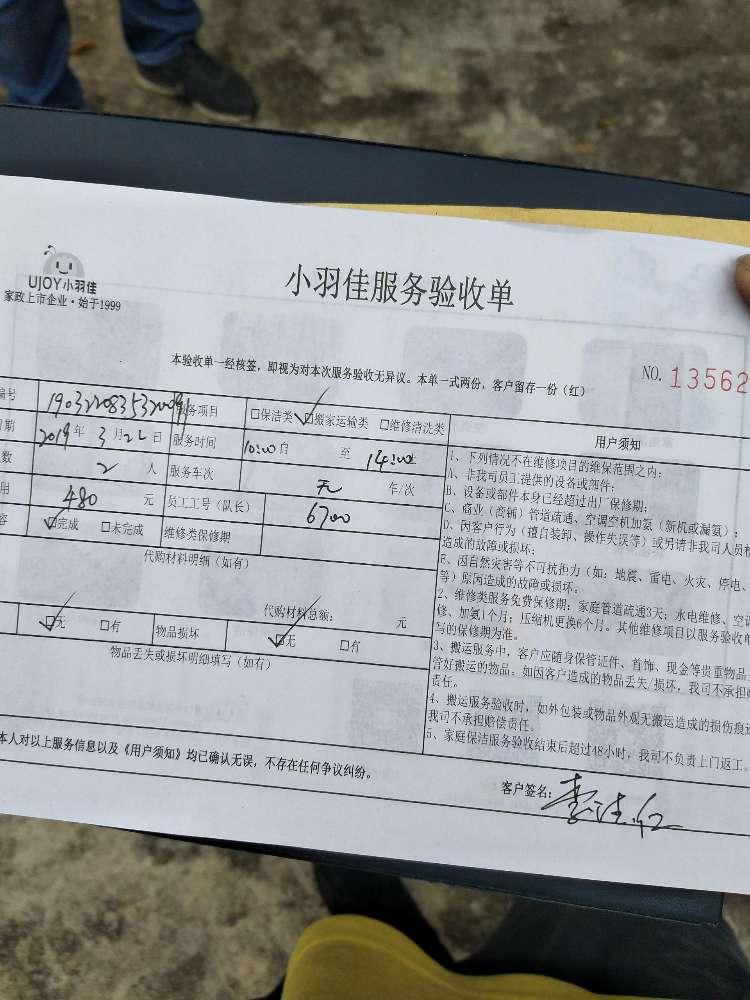 UJOY小羽佳
家政上市企业·始于1999
小羽佳服务验收单
本验收单一经核签,即视为对本次服务验收无异议。本单一式两份,客户留存一份(红)
NO. 13562
编号 服务项目 □保洁类 ☑搬家运输类 □维修清洗类
日期 2019年3月22日 服务时间 10:00自 至 14:00
数 2 人 服务车次 无 车/次
用 480 元 员工工号(队长) 6700
容 ☑完成 □未完成 维修类保修期
代购材料明细(如有)
代购材料总额: 元
☑无 □有 物品损坏 ☑无 □有
物品丢失或损坏明细填写(如有)
用户须知
1、下列情况不在维修项目的维保范围之内:
A、非我司员工提供的设备或部件;
B、设备或部件本身已经超过出厂保修期;
C、商业(商铺)管道疏通、空调空机加氨(新机或漏氨);
D、因客户行为(擅自装卸、操作失误等)或另请非我司人员
造成的故障或损坏;
E、因自然灾害等不可抗拒力(如:地震、雷电、火灾、停电、
等)原因造成的故障或损坏。
2、维修类服务免费保修期:家庭管道疏通3天;水电维修、空调
修、加氨1个月;压缩机更换6个月。其他维修项目以服务验收单
写的保修期为准。
3、搬运服务中,客户应随身保管证件、首饰、现金等贵重物品
管好搬运的物品。如因客户造成的物品丢失/损坏,我司不承担
责任。
4、搬运服务验收时,如外包装或物品外观无搬运造成的损伤痕迹
我司不承担赔偿责任。
5、家庭保洁服务验收结束后超过48小时,我司不负责上门返工。
本人对以上服务信息以及《用户须知》均已确认无误,不存在任何争议纠纷。
客户签名: